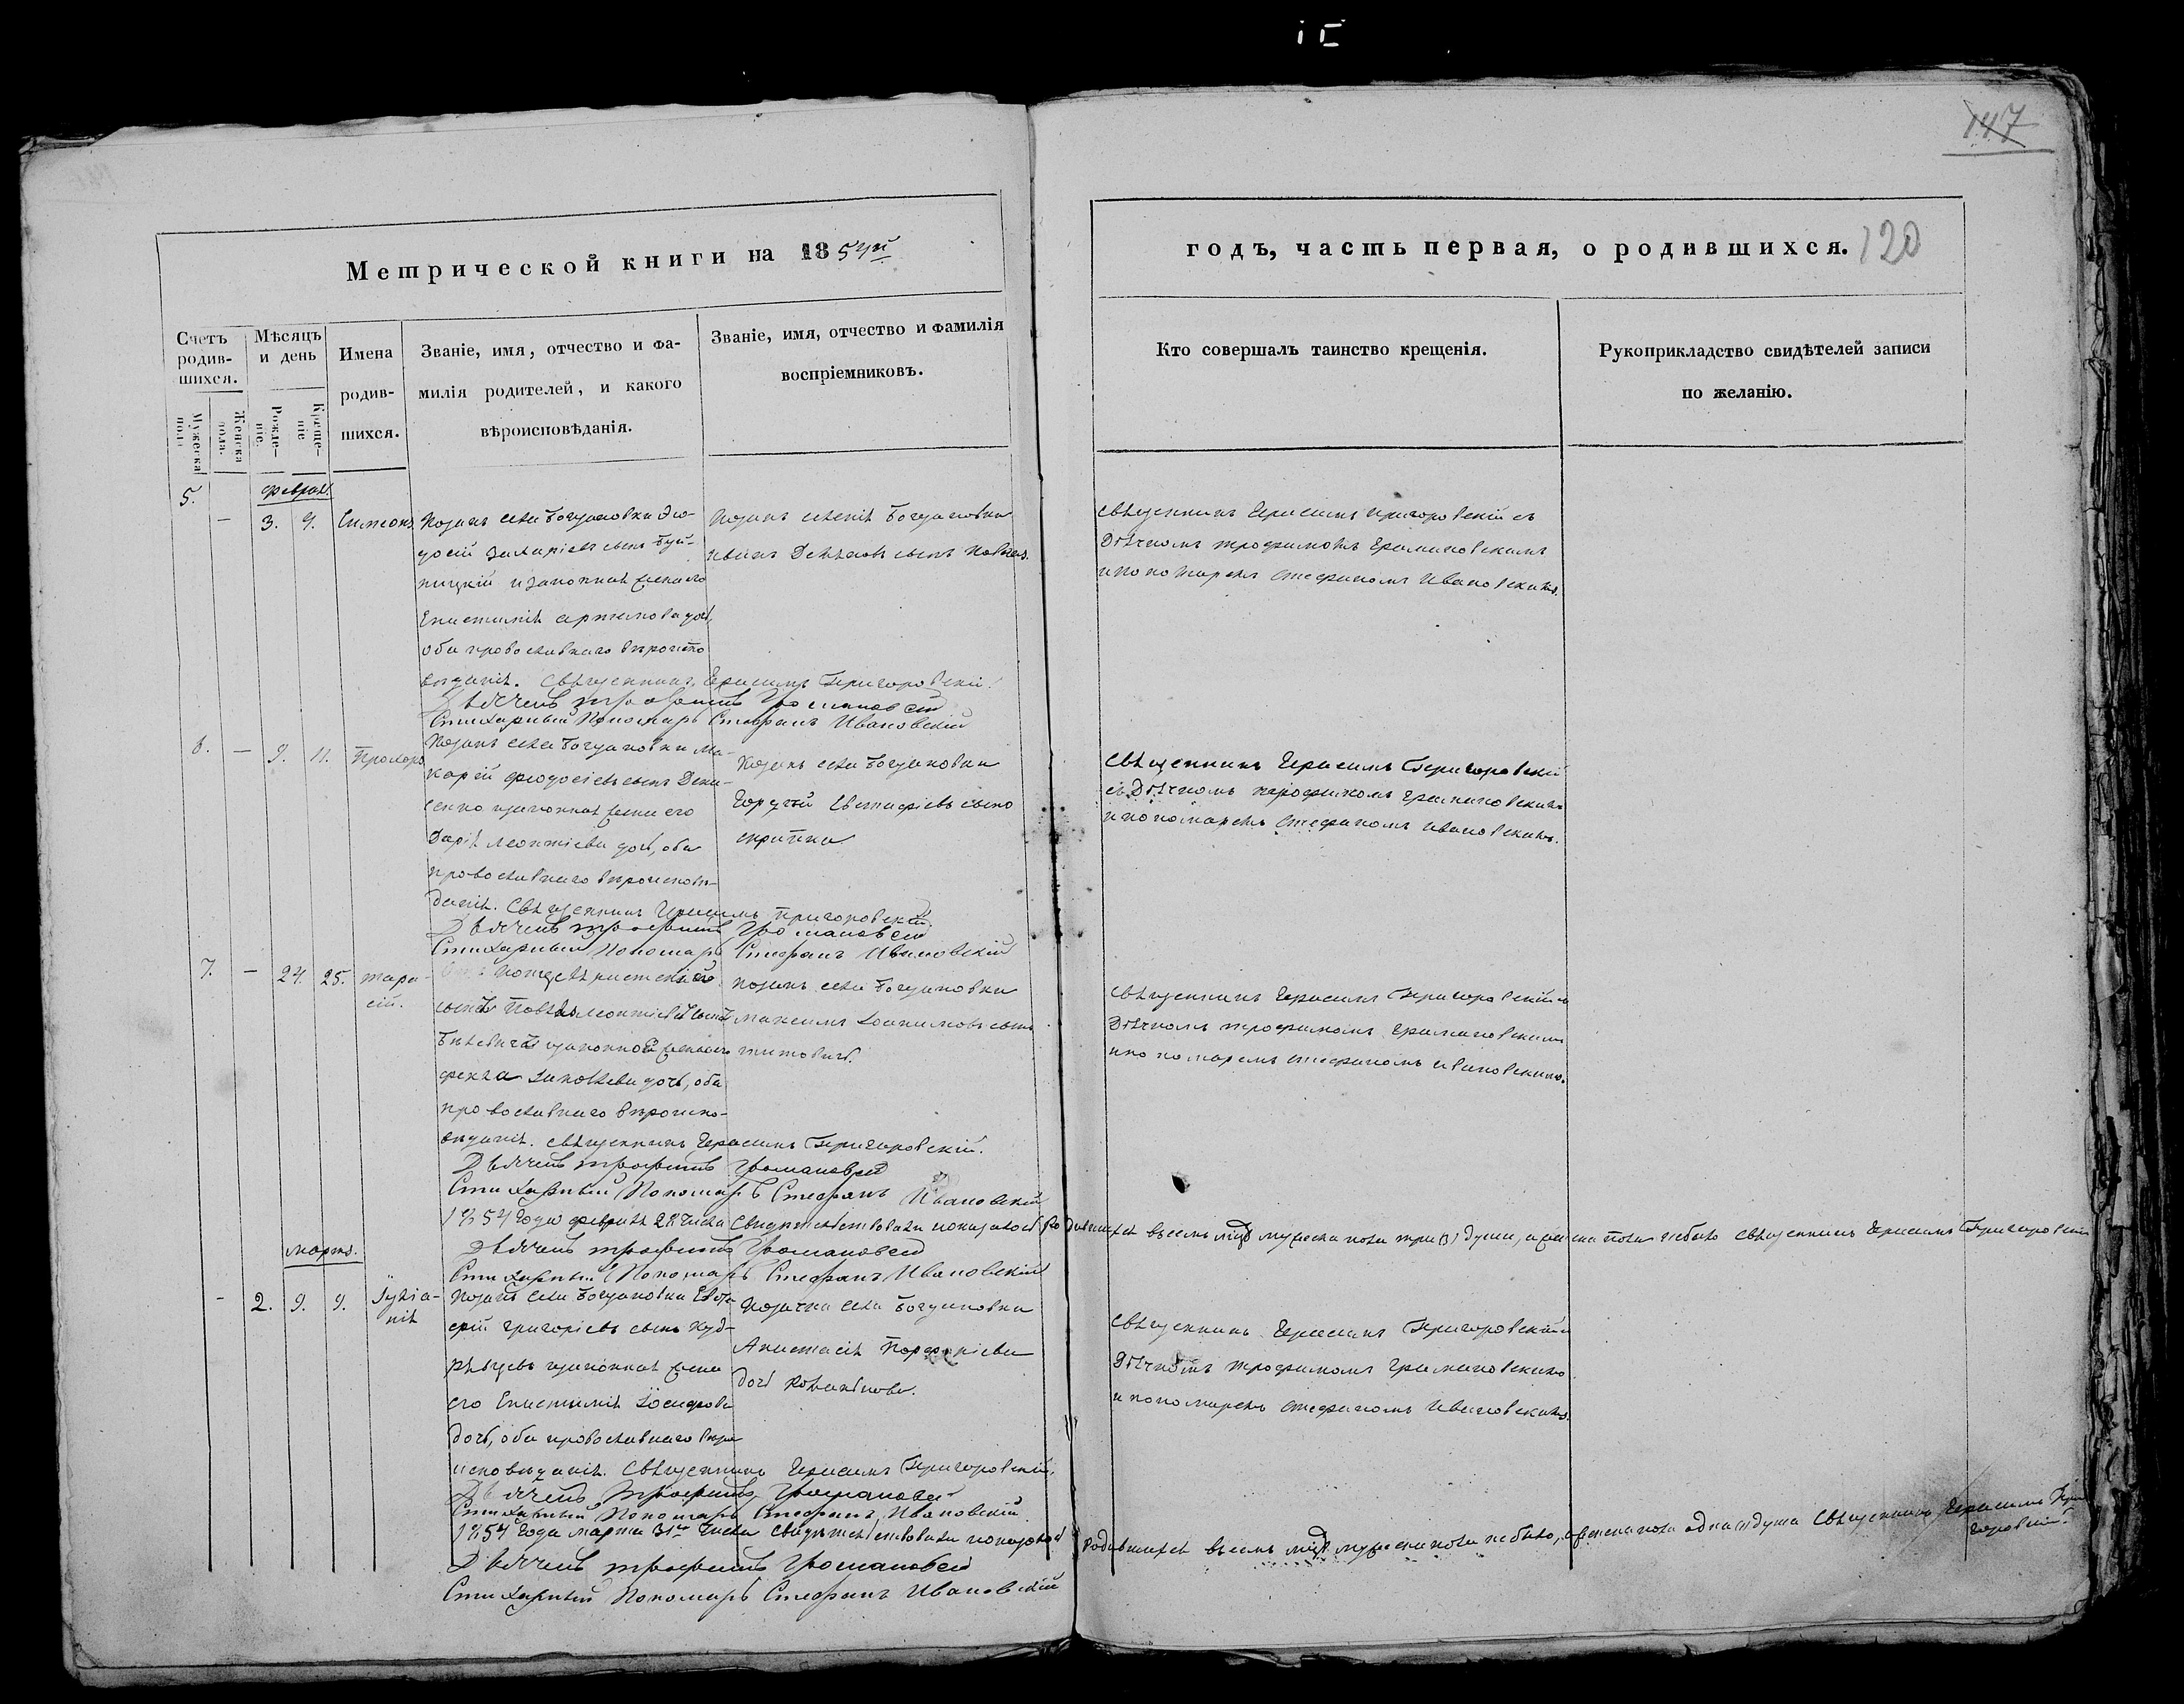 147
120
Метрической книги на 1854й
годъ, часть первая, о родившихся.
Счетъ родив-шихся.
Мужеска пола
Женска пола.
Мѣсяцъ и день
Рожде-ніе.
Креще-ніе
Имена родив-шихся.
Званіе, имя, отчество и фа-
милія родителей, и какого
вѣроисповѣданія.
Званіе, имя, отчество и фамилія
воспріемниковъ.
Кто совершалъ таинство крещенія.
Рукоприкладство свидѣтелей записи
по желанію.
5.
феврал.
— 3. 9. Симеонъ
Козакъ села Богдановки Фео-
досій Захаріевъ сынъ
и законная жена его
Епистимія Артемова дочь,
оба православнаго вѣроиспо
вѣданія. Священникъ Герасимъ Григоровскій.
Дьячекъ Трофимъ Громановскій
Стихарный Пономарь Стефанъ Ивановскій
Козакъ селенія Богдановки
Иванъ сынъ
Священникъ Герасимъ Григоровскій съ
Дьячкомъ Трофимомъ Громановскимъ
и пономаремъ Стефаномъ Ивановскимъ.
6. — 9. 11. Прохоръ
Козакъ села Богдановки Ма-
карій Феодосіевъ сынъ Дени-
сенко и законная жена его
Дарія Леонтіева дочь, оба
православнаго вѣроисповѣ-
данія. Священникъ Герасимъ Григоровскій
Дьячекъ Трофимъ Громановскій
Стихарный Пономарь Стефанъ Ивановскій
Козакъ села Богдановки
Гордѣй Евстафіевъ сынъ
Скрипка
Священникъ Герасимъ Григоровскій
съ Дьячкомъ Трофимомъ Громановскимъ
и пономаремъ Стефаномъ Ивановскимъ.
7. — 24. 25. Тара-
сій.
сынъ Павелъ Леонтіевъ сынъ
и законная жена его
Фекла Яковлева дочь, оба
православнаго вѣроиспо-
вѣданія. Священникъ Герасимъ Григоровскій.
Дьячекъ Трофимъ Громановскій
Стихарный Пономарь Стефанъ Ивановскій
Козакъ села Богдановки
Максимъ Іоакимовъ сынъ
Титовичъ.
Священникъ Герасимъ Григоровскій и
Дьячкомъ Трофимомъ Громановскимъ
и пономаремъ Стефаномъ Ивановскимъ.
1854 года февраля 28 числа свидѣтельствовали показаній родившихся всемъ мцѣ мужеска пола три (3) души, а женска пола небыло священникъ Герасимъ Григоровскій
Дьячекъ Трофимъ Громановскій
Стихарный Пономарь Стефанъ Ивановскій
мартъ.
- 2. 9. 9. Іуліа-
нія
Козакъ села Богдановки
Григоріевъ сынъ
и законная жена
его Епистимія Іосифова
дочь, оба православнаго вѣро
исповѣданія. Священникъ Герасимъ Григоровскій.
Дьячекъ Трофимъ Громановскій
Стихарный Пономарь Стефанъ Ивановскій.
Козачка села Богдановки
Анастасія
дочь Романкова.
Священникъ Герасимъ Григоровскій и
Дьячкомъ Трофимомъ Громановскимъ
и пономаремъ Стефаномъ Ивановскимъ.
1854 года марта 31го числа свидѣтельствовали показаній родившихся всемъ мцѣ мужеска пола небыло, а женска пола одна (1) душа Священникъ Герасимъ Гри
горовскій.
Дьячекъ Трофимъ Громановскій
Стихарный Пономарь Стефанъ Ивановскій